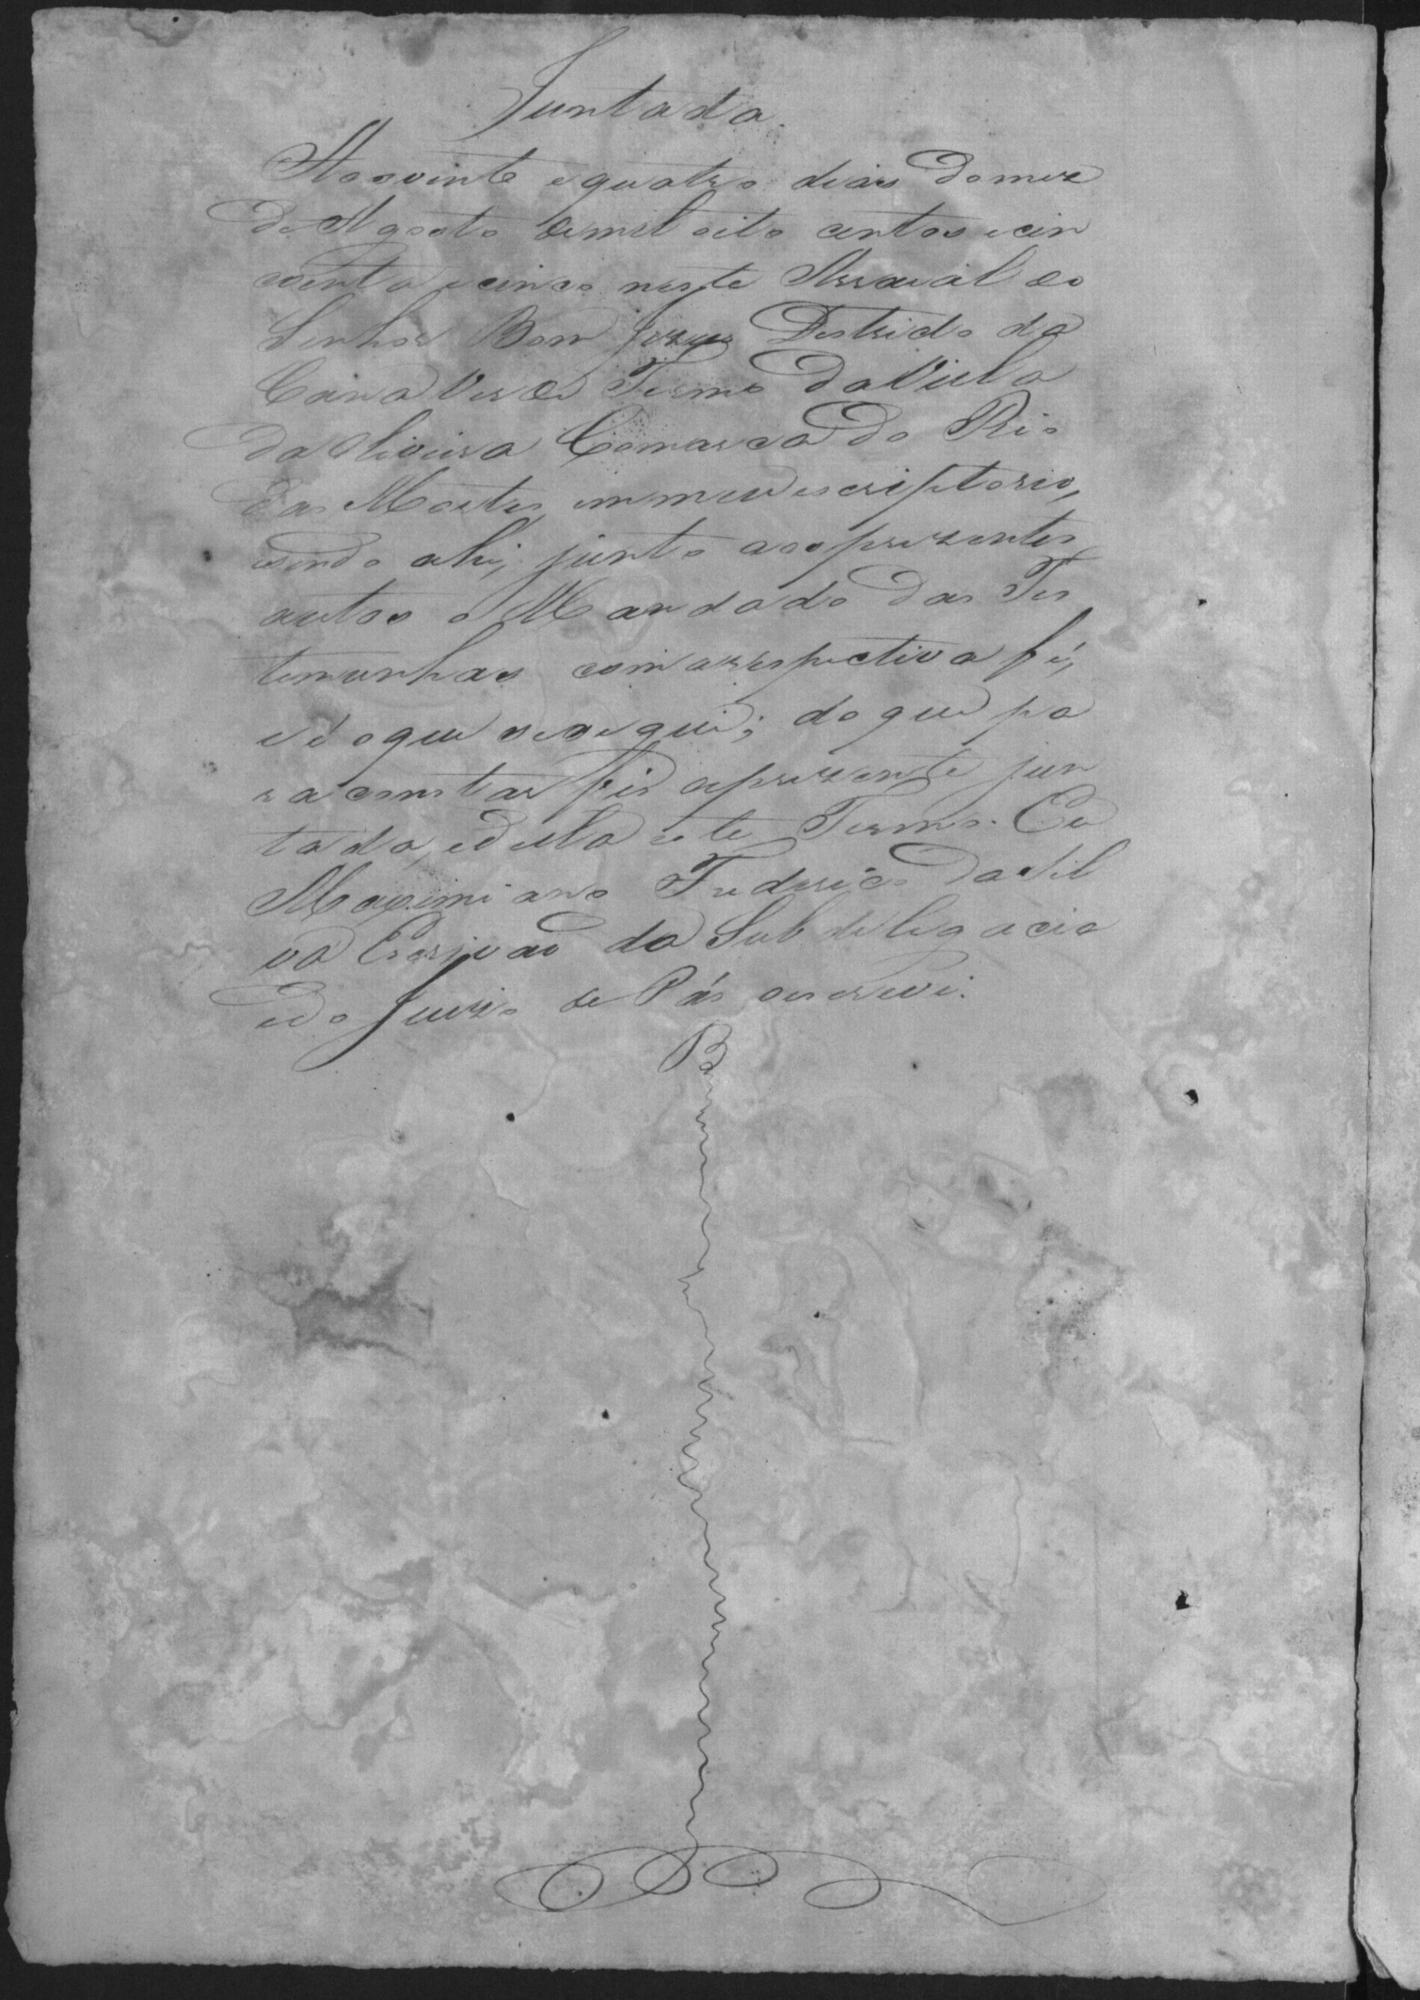 Juntada.
Aos vinte e quatro dias do mez
de Agosto de mil oito centos e cin
coenta e cinco neste Arraial do
Senhor Bom Jezus Destricto da
Cana Verde Termo da Villa
da Oliveira Comarca do Rio
das Mortes, em meu escriptorio,
sendo ahi, junto aos prezentes
autos o Mandado das Tes
temunhas com a respectiva fé,
e é o que se segue; do que pa
ra constar fis a prezente jun
tada, e della este Termo. Eu
Maximiano Frederico da Sil
va Escrivão da Subdelegacia
e do Juizo de Pás o escrevi.
B